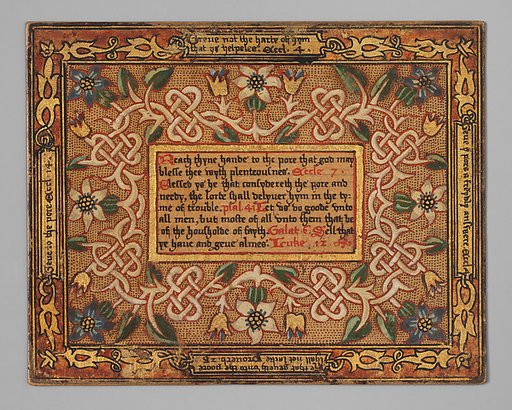 Greue not the harte of hym
that ys helpeles. Eccl. 4.
Reach thyne hande to the pore that god may
blesse thee wyth plenteousnes. Eccle. 7.
Blessed ys he that consydereth the pore and
needy, the lorde shall delyuer hym in the ty-
me of trouble. psal. 41. Let vs do goode vnto
all men, but moste of all vnto them that be
of the housholde of fayth. Galat. 6. Sell that
ye haue and geue almes. Luke. 12.
Geue to the pore. Eccl. 14.
Geue pore a frendly answere Eccl.
He that geueth vnto the poore
shall not lacke Prouerb. 28